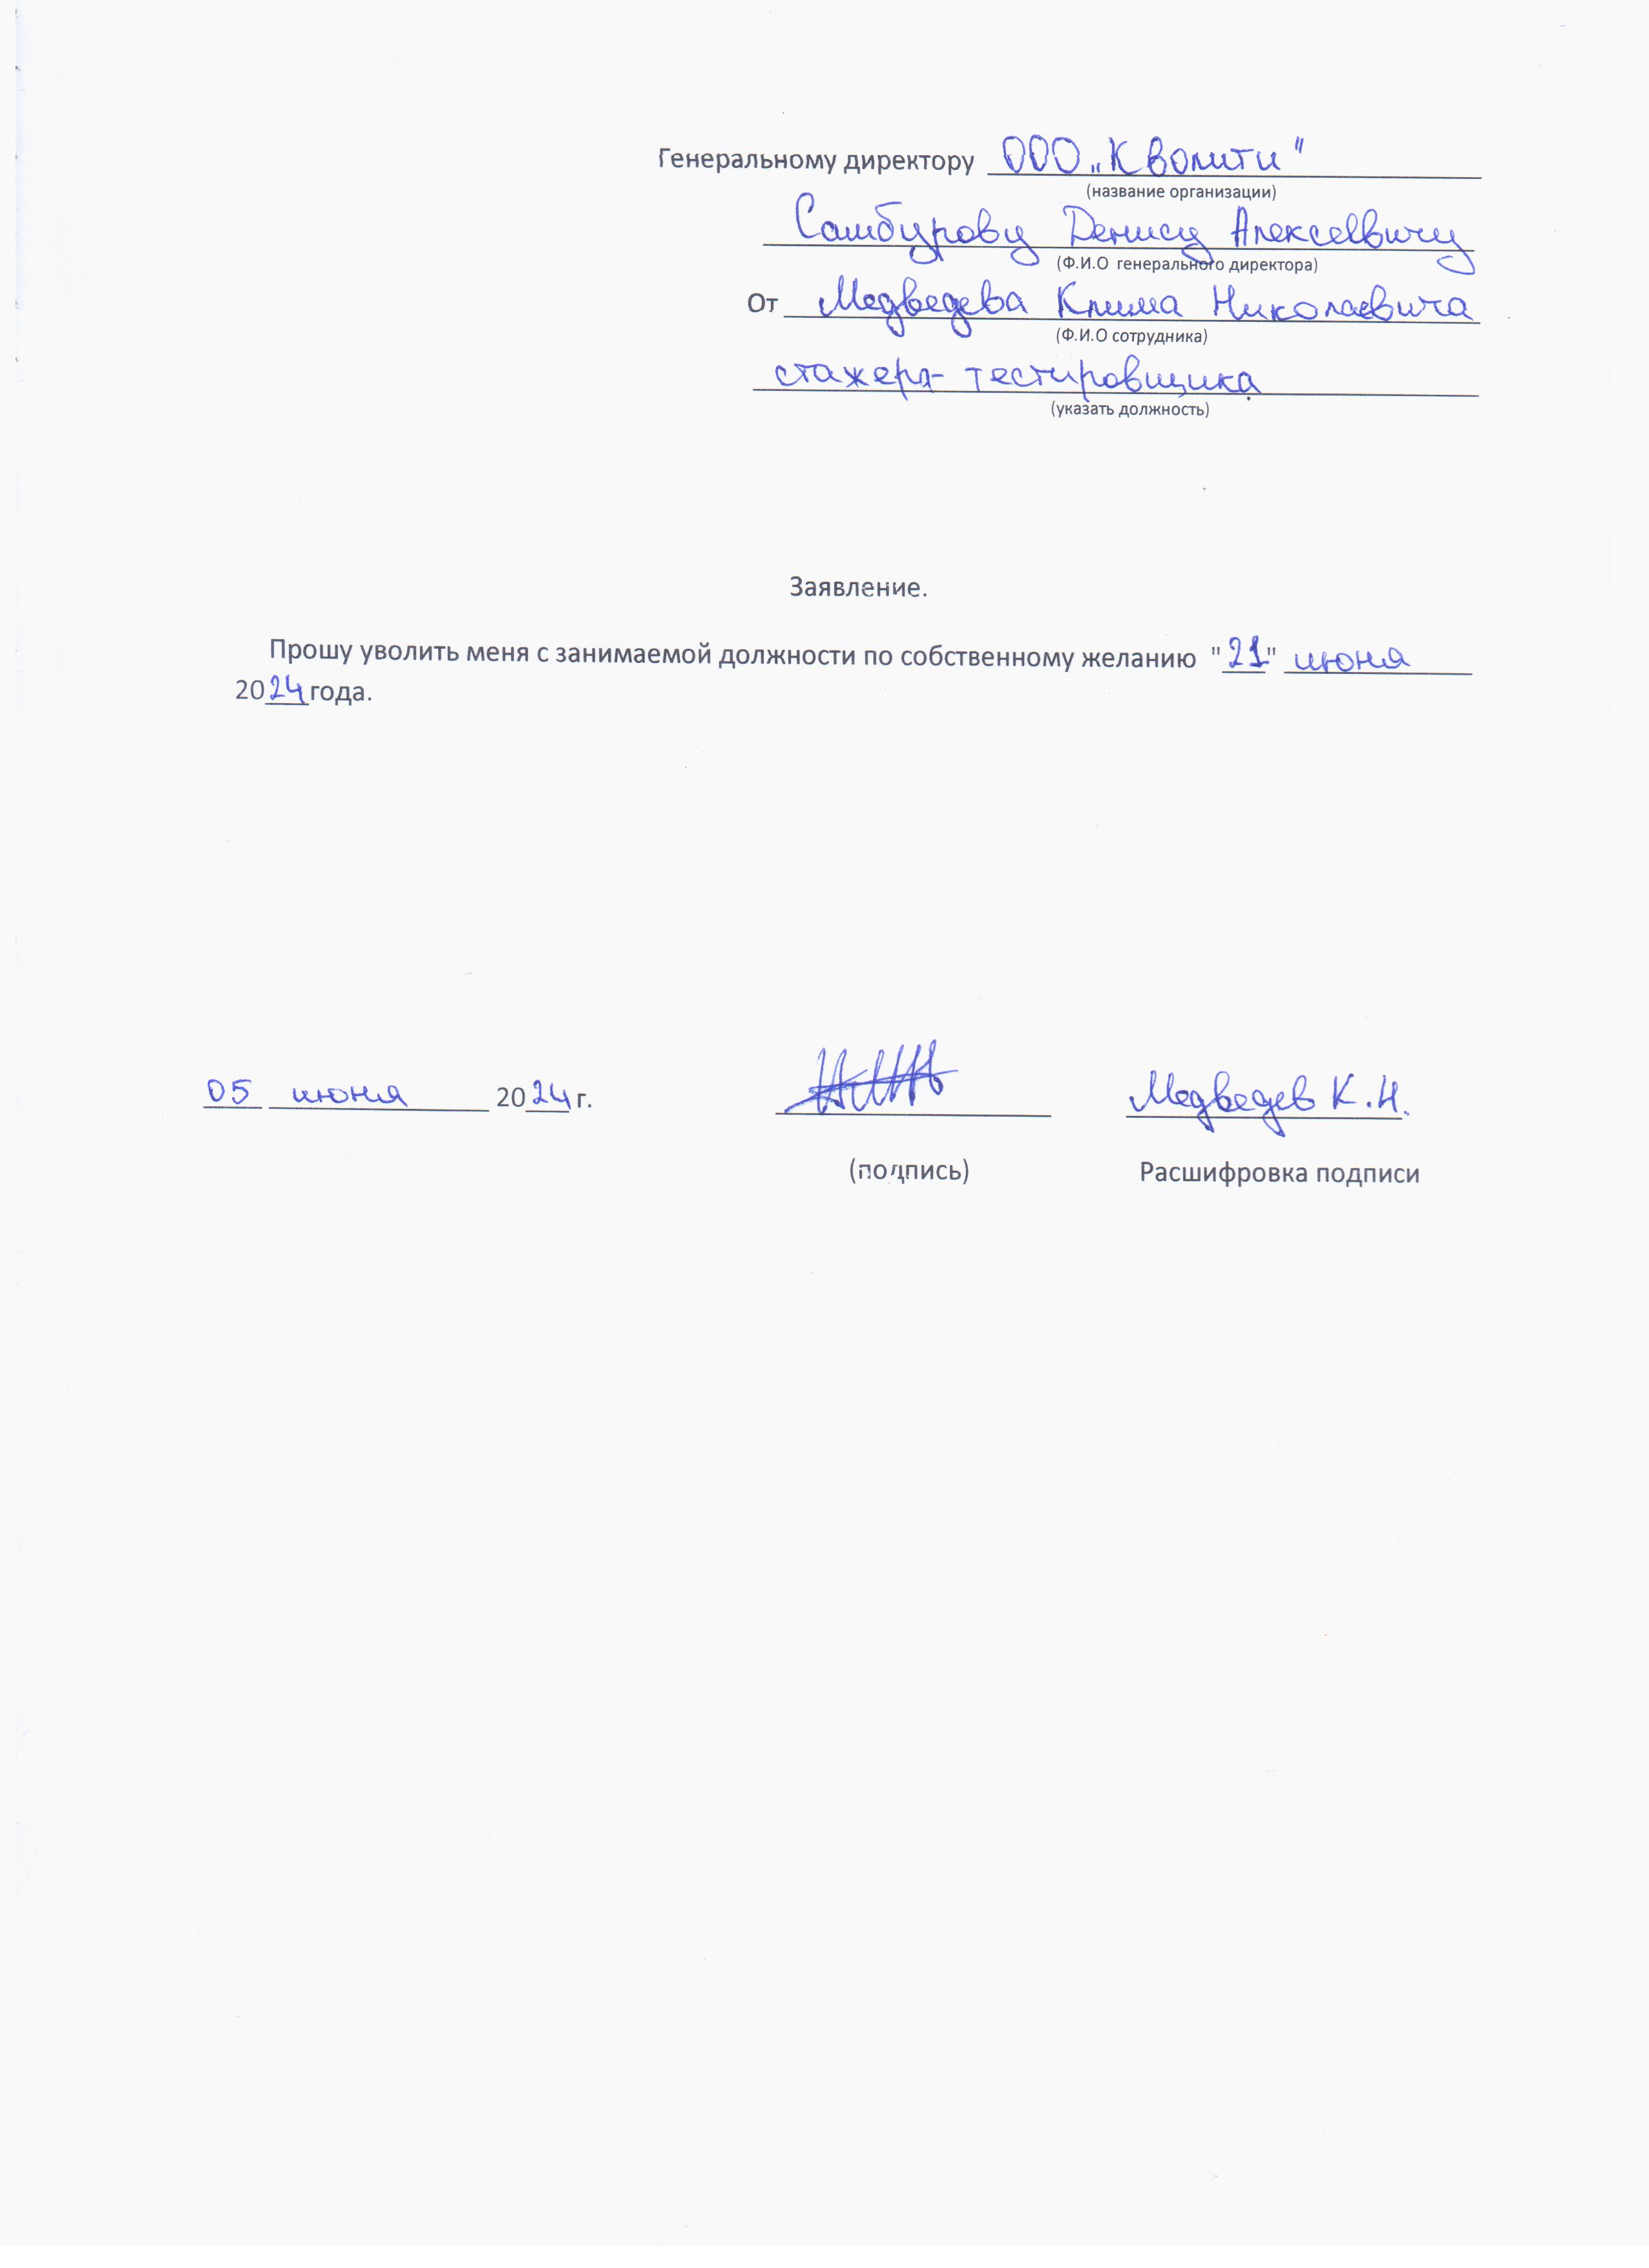 Генеральному директору ООО „Кволити"
(название организации)
Самбурову Денису Алексеевичу
(Ф.И.О генерального директора)
От Медведева Клима Николаевича
(Ф.И.О сотрудника)
стажера-тестировщика
(указать должность)
Заявление.
Прошу уволить меня с занимаемой должности по собственному желанию "21" июня
2024 года.
05 июня 2024 г. Медведев К.Н.
(подпись) Расшифровка подписи